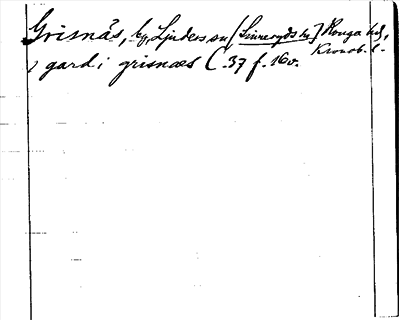 Grisnäs, by, Ljuders sn [Linneryds sn] Konga hd,
Kronob. l.
1 gard i grisnæs C 37 f. 16v.